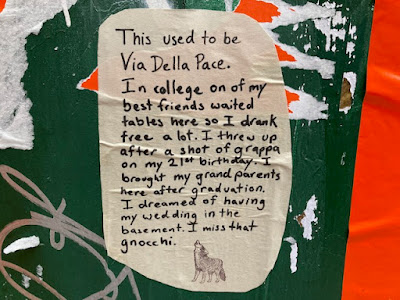 This used to be
Via Della Pace.
In college on of my
best friends waited
tables here so I drank
free a lot. I threw up
after a shot of grappa
on my 21st birthday. I
brought my grand parents
here after graduation.
I dreamed of having
my wedding in the
basement. I miss that
gnocchi.